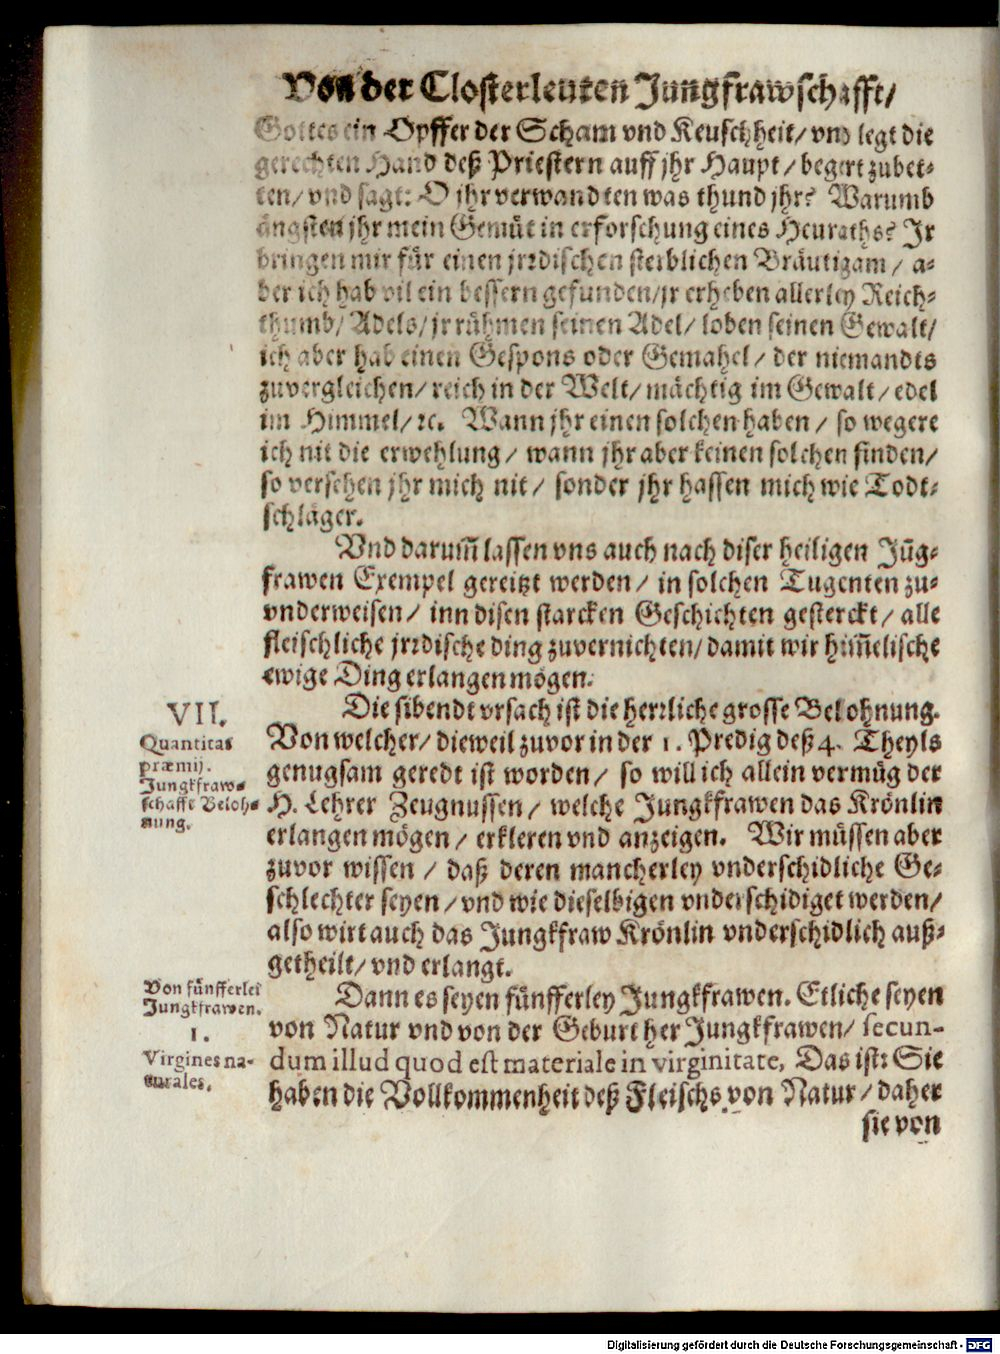 Von der Closterleuten Jungfrawschafft/
Gottes ein Opffer der Scham vnd Keuschheit/ vnd legt die
gerechten Hand deß Priestern auff jhr Haupt/ begert zubet-
ten/ vnd sagt: O jhr verwandten was thund jhr? Warumb
ängsten jhr mein Gemüt in erforschung eines Heuraths? Jr
bringen mir für einen jrrdischen sterblichen Bräutigam/ a-
ber ich hab vil ein bessern gefunden/ jr erheben allerley Reich-
thumb/ Adels/ jr rühmen seinen Adel/ loben seinen Gewalt/
ich aber hab einen Gespons oder Gemahel/ der niemandts
zuvergleichen/ reich in der Welt/ mächtig im Gewalt/ edel
im Himmel/ ꝛc. Wann jhr einen solchen haben/ so wegere
ich nit die erwehlung/ wann jhr aber keinen solchen finden/
so versehen jhr mich nit/ sonder jhr hassen mich wie Todt-
schläger.
Vnd darum̃ lassen vns auch nach diser heiligen Jũg-
frawen Exempel gereitzt werden/ in solchen Tugenten zu-
vnderweisen/ inn disen starcken Geschichten gesterckt/ alle
fleischliche jrrdische ding zuvernichten/ damit wir him̃elische
ewige Ding erlangen mögen.
VII.
Quantitas
præmij.
Jungkfraw-
schafft Beloh-
nung.
Die sibendt vrsach ist die herrliche grosse Belohnung.
Von welcher/ dieweil zuvor in der 1. Predig deß 4. Theyls
genugsam geredt ist worden/ so will ich allein vermüg der
H. Lehrer Zeugnussen/ welche Jungkfrawen das Krönlin
erlangen mögen/ erkleren vnd anzeigen. Wir müssen aber
zuvor wissen/ daß deren mancherley vnderschidliche Ge-
schlechter seyen/ vnd wie dieselbigen vnderschidiget werden/
also wirt auch das Jungkfraw Krönlin vnderschidlich auß-
getheilt/ vnd erlangt.
Von fünfferlei
Jungkfrawen.
1.
Virgines na-
turales.
Dann es seyen fünfferley Jungkfrawen. Etliche seyen
von Natur vnd von der Geburt her Jungkfrawen/ secun-
dum illud quod est materiale in virginitate, Das ist: Sie
haben die Vollkommenheit deß Fleischs von Natur/ daher
sie von
Digitalisierung gefördert durch die Deutsche Forschungsgemeinschaft - DFG